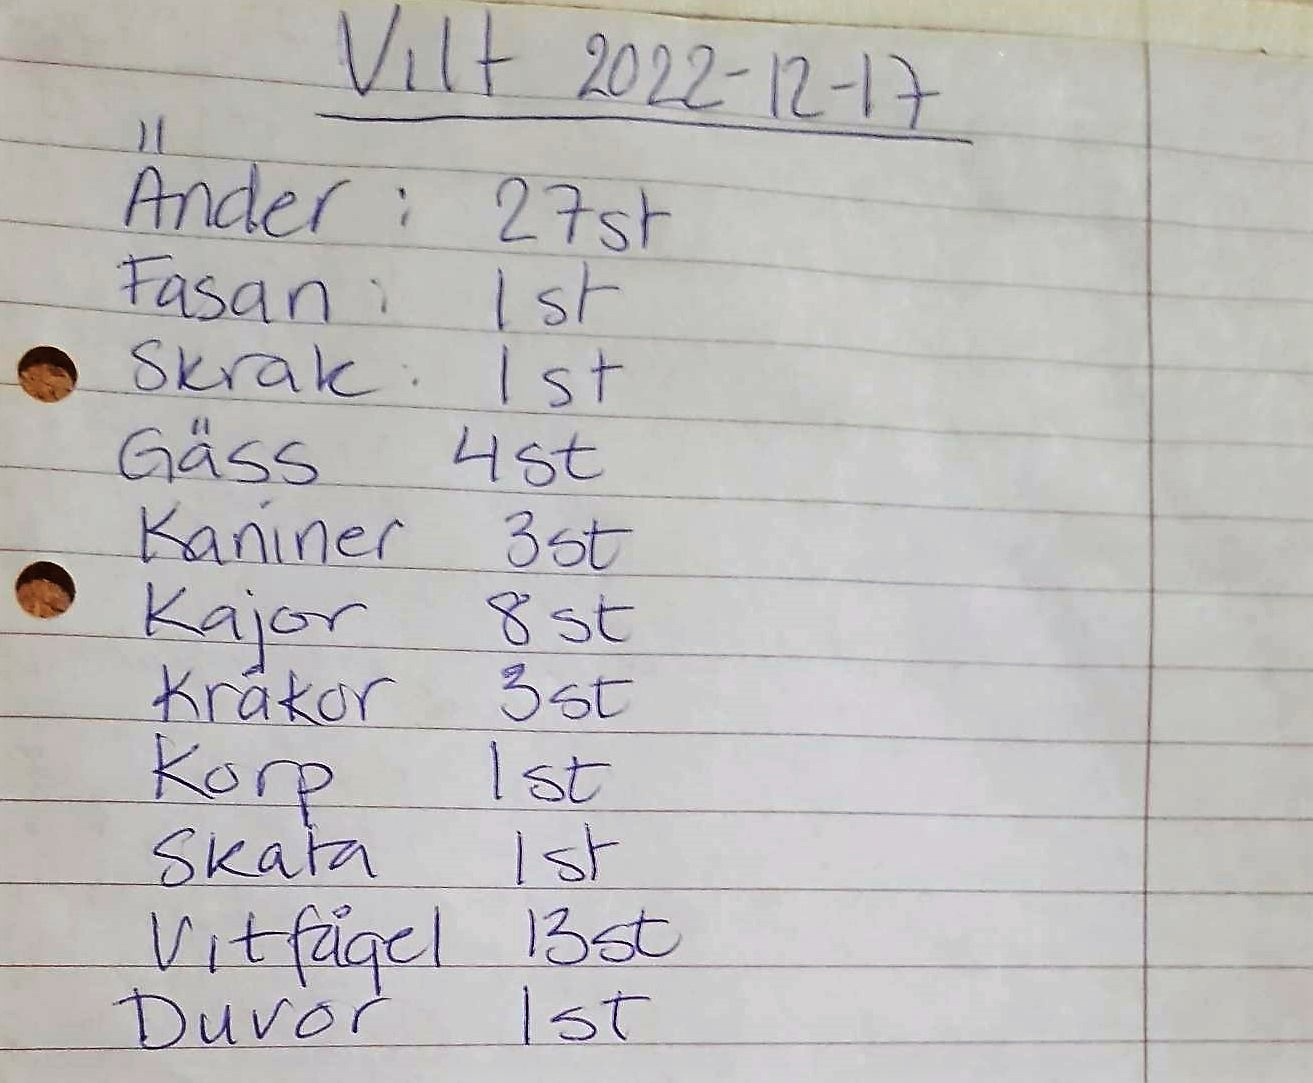 Vilt 2022-12-17
Änder: 27st
Fasan: 1st
Skrak: 1st
Gäss 4st
Kaniner 3st
Kajor 8st
Kråkor 3st
Korp 1st
Skata 1st
Vitfågel 13st
Duvor 1st